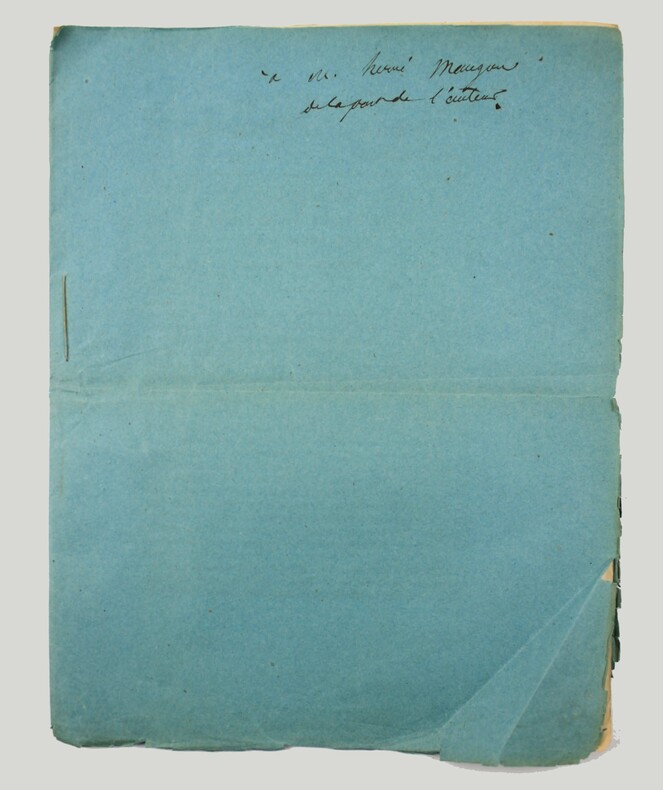 à M. hervé Mangon
de la part de l'auteur.